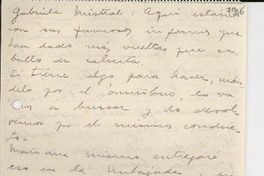 Gabriela Mistral: Aquí estamos
con sus famosos informes que
han dado más vueltas que ca-
ballo de calesita.
Si tiene algo para hacer, mán-
delo por el ómnibus, lo va-
a buscar y lo devol-
vemos por el mismo conduc-
to.
Mañana mismo entregaré
eso en la Embajada